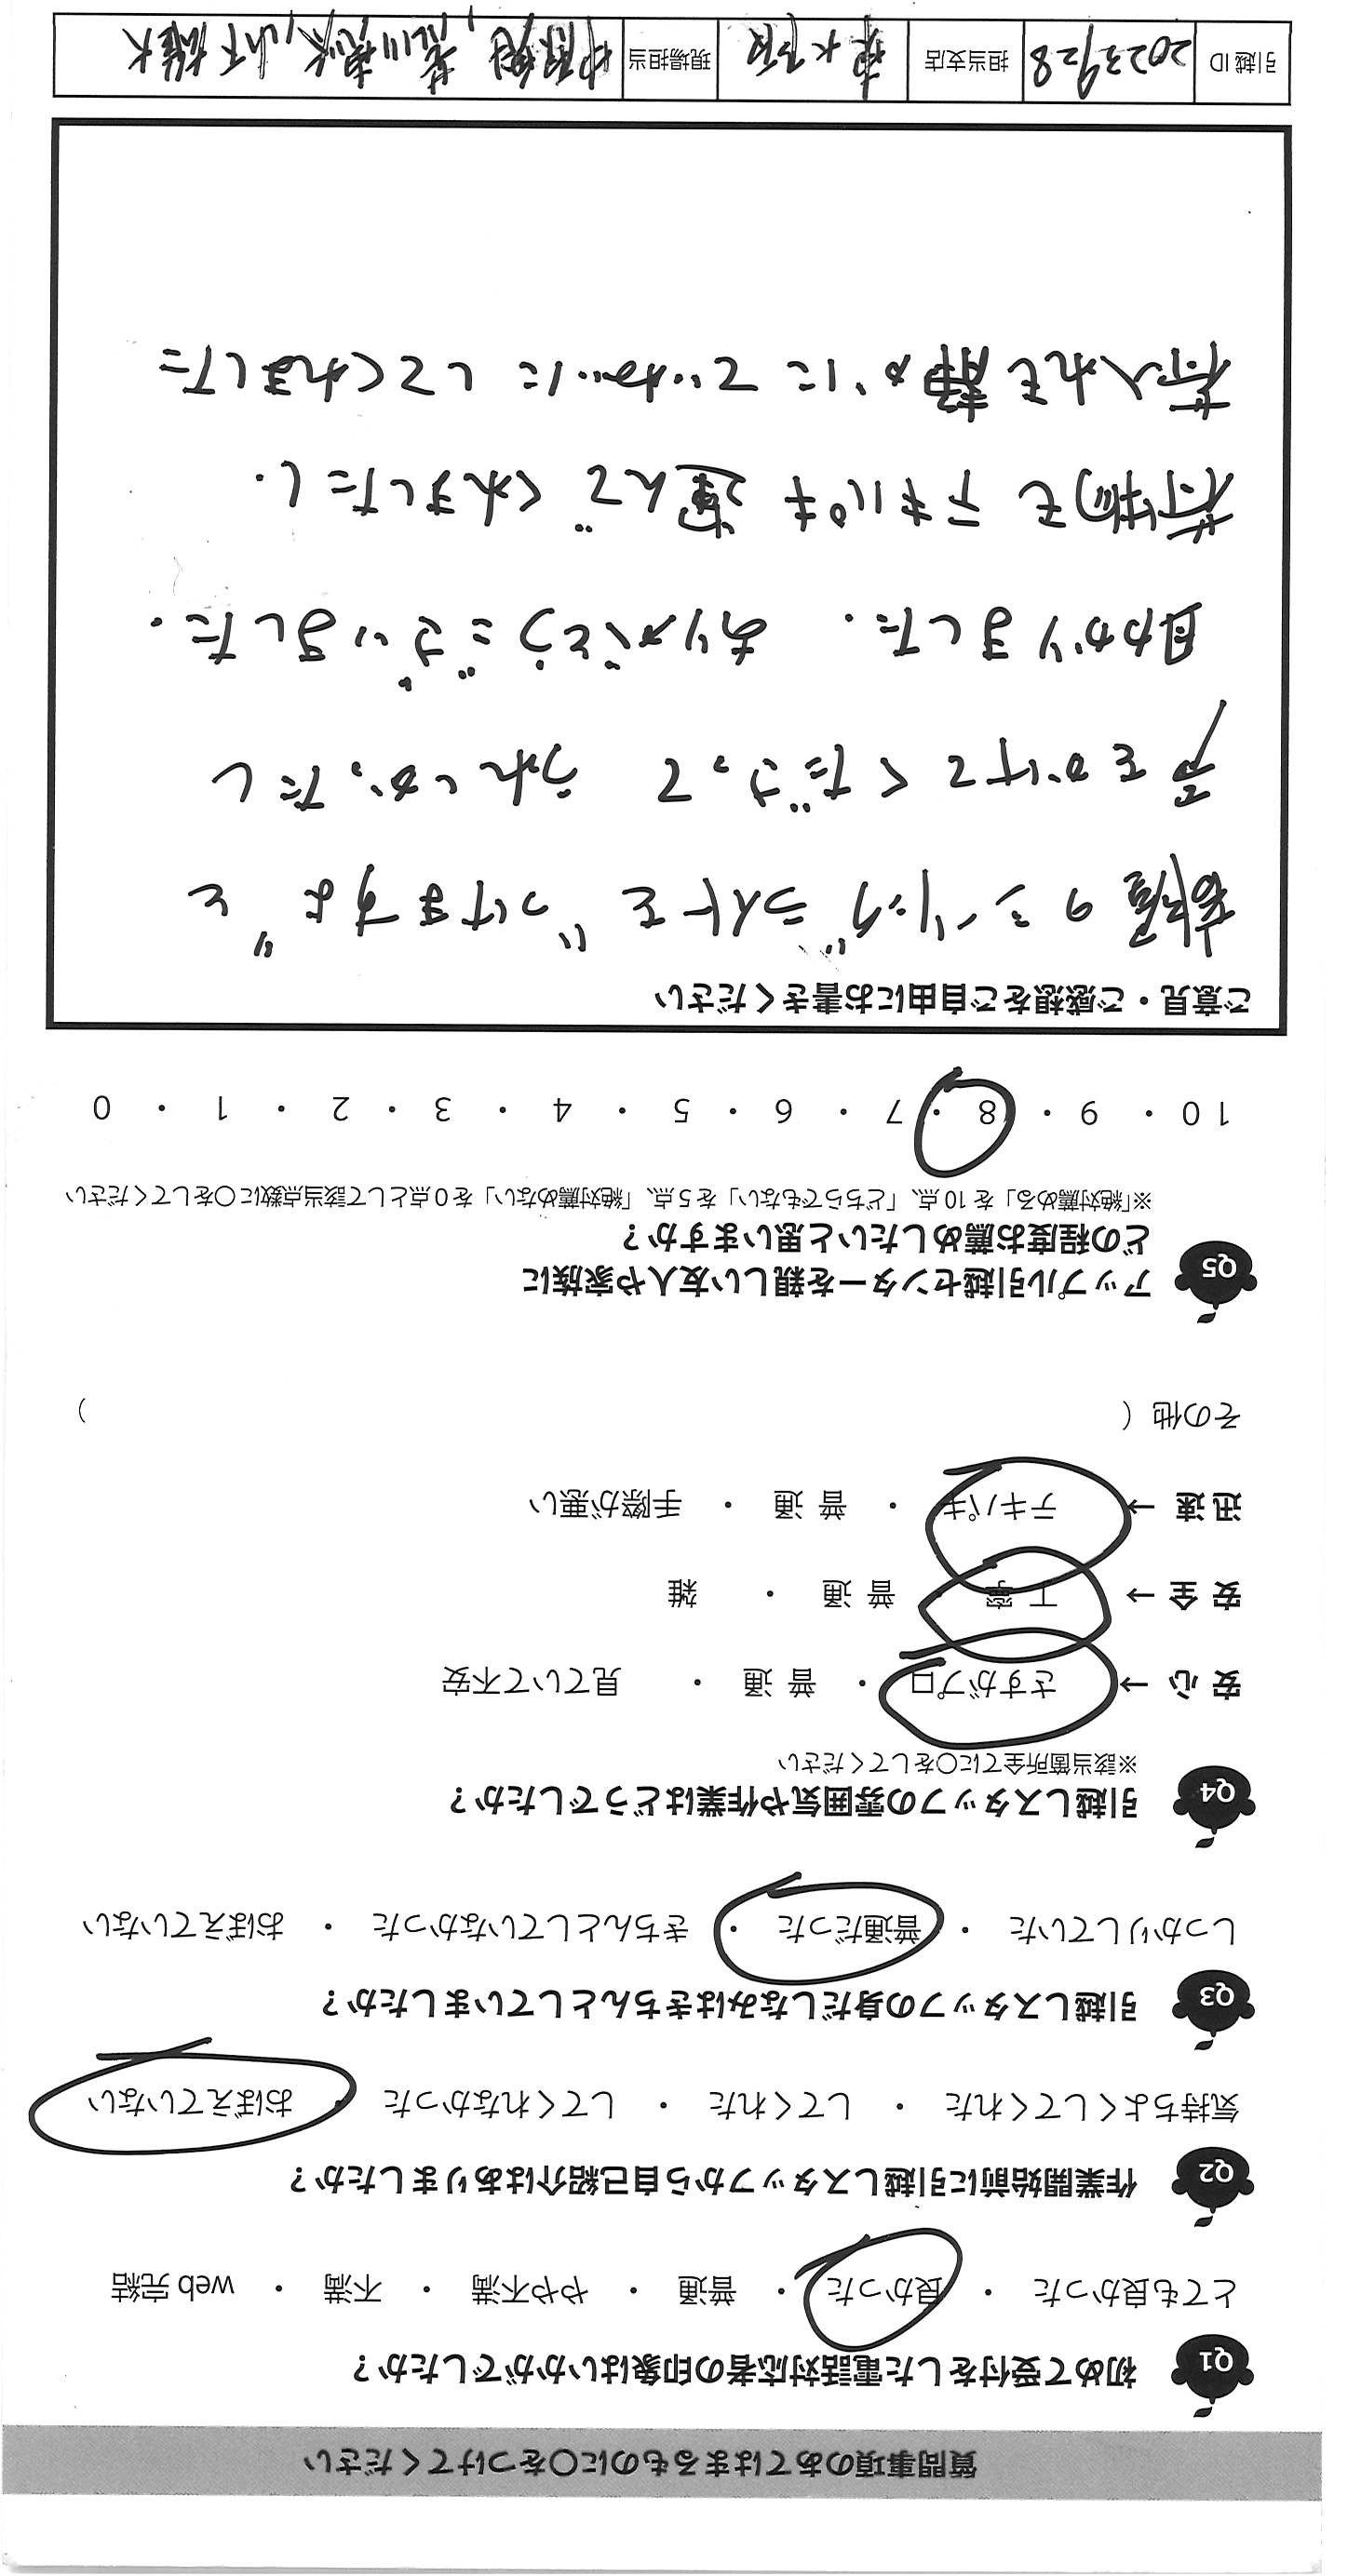 質問事項のあてはまるものに○をつけてください
Q1 初めて受付をした電話対応者の印象はいかがでしたか？
とても良かった ・ 良かった ・ 普通 ・ やや不満 ・ 不満 ・ web 完結
Q2 作業開始前に引越しスタッフから自己紹介はありましたか？
気持ちよくしてくれた ・ してくれた ・ してくれなかった ・ おぼえていない
Q3 引越しスタッフの身だしなみはきちんとしていましたか？
しっかりしていた ・ 普通だった ・ きちんとしていなかった ・ おぼえていない
Q4 引越しスタッフの雰囲気や作業はどうでしたか？
※該当箇所全てに○をしてください
安 心 → さすがプロ ・ 普 通 ・ 見ていて不安
安 全 → 丁 寧 ・ 普 通 ・ 雑
迅 速 → テキパキ ・ 普 通 ・ 手際が悪い
その他（ ）
Q5 アップル引越センターを親しい友人や家族に
どの程度お薦めしたいと思いますか？
※「絶対薦める」を 10 点、「どちらでもない」を 5 点、「絶対薦めない」を 0 点として該当点数に○をしてください
10 ・ 9 ・ 8 ・ 7 ・ 6 ・ 5 ・ 4 ・ 3 ・ 2 ・ 1 ・ 0
ご意見・ご感想をご自由にお書きください
部屋のシーリングライトを"つけますよ"と
声をかけてくださって うれしかったし
助かりました. ありがとうございました.
荷物もテキパキ運んでくれましたし.
荷入れも静かに ていねいに してくれました
引越 ID 2023928 担当支店 現場担当